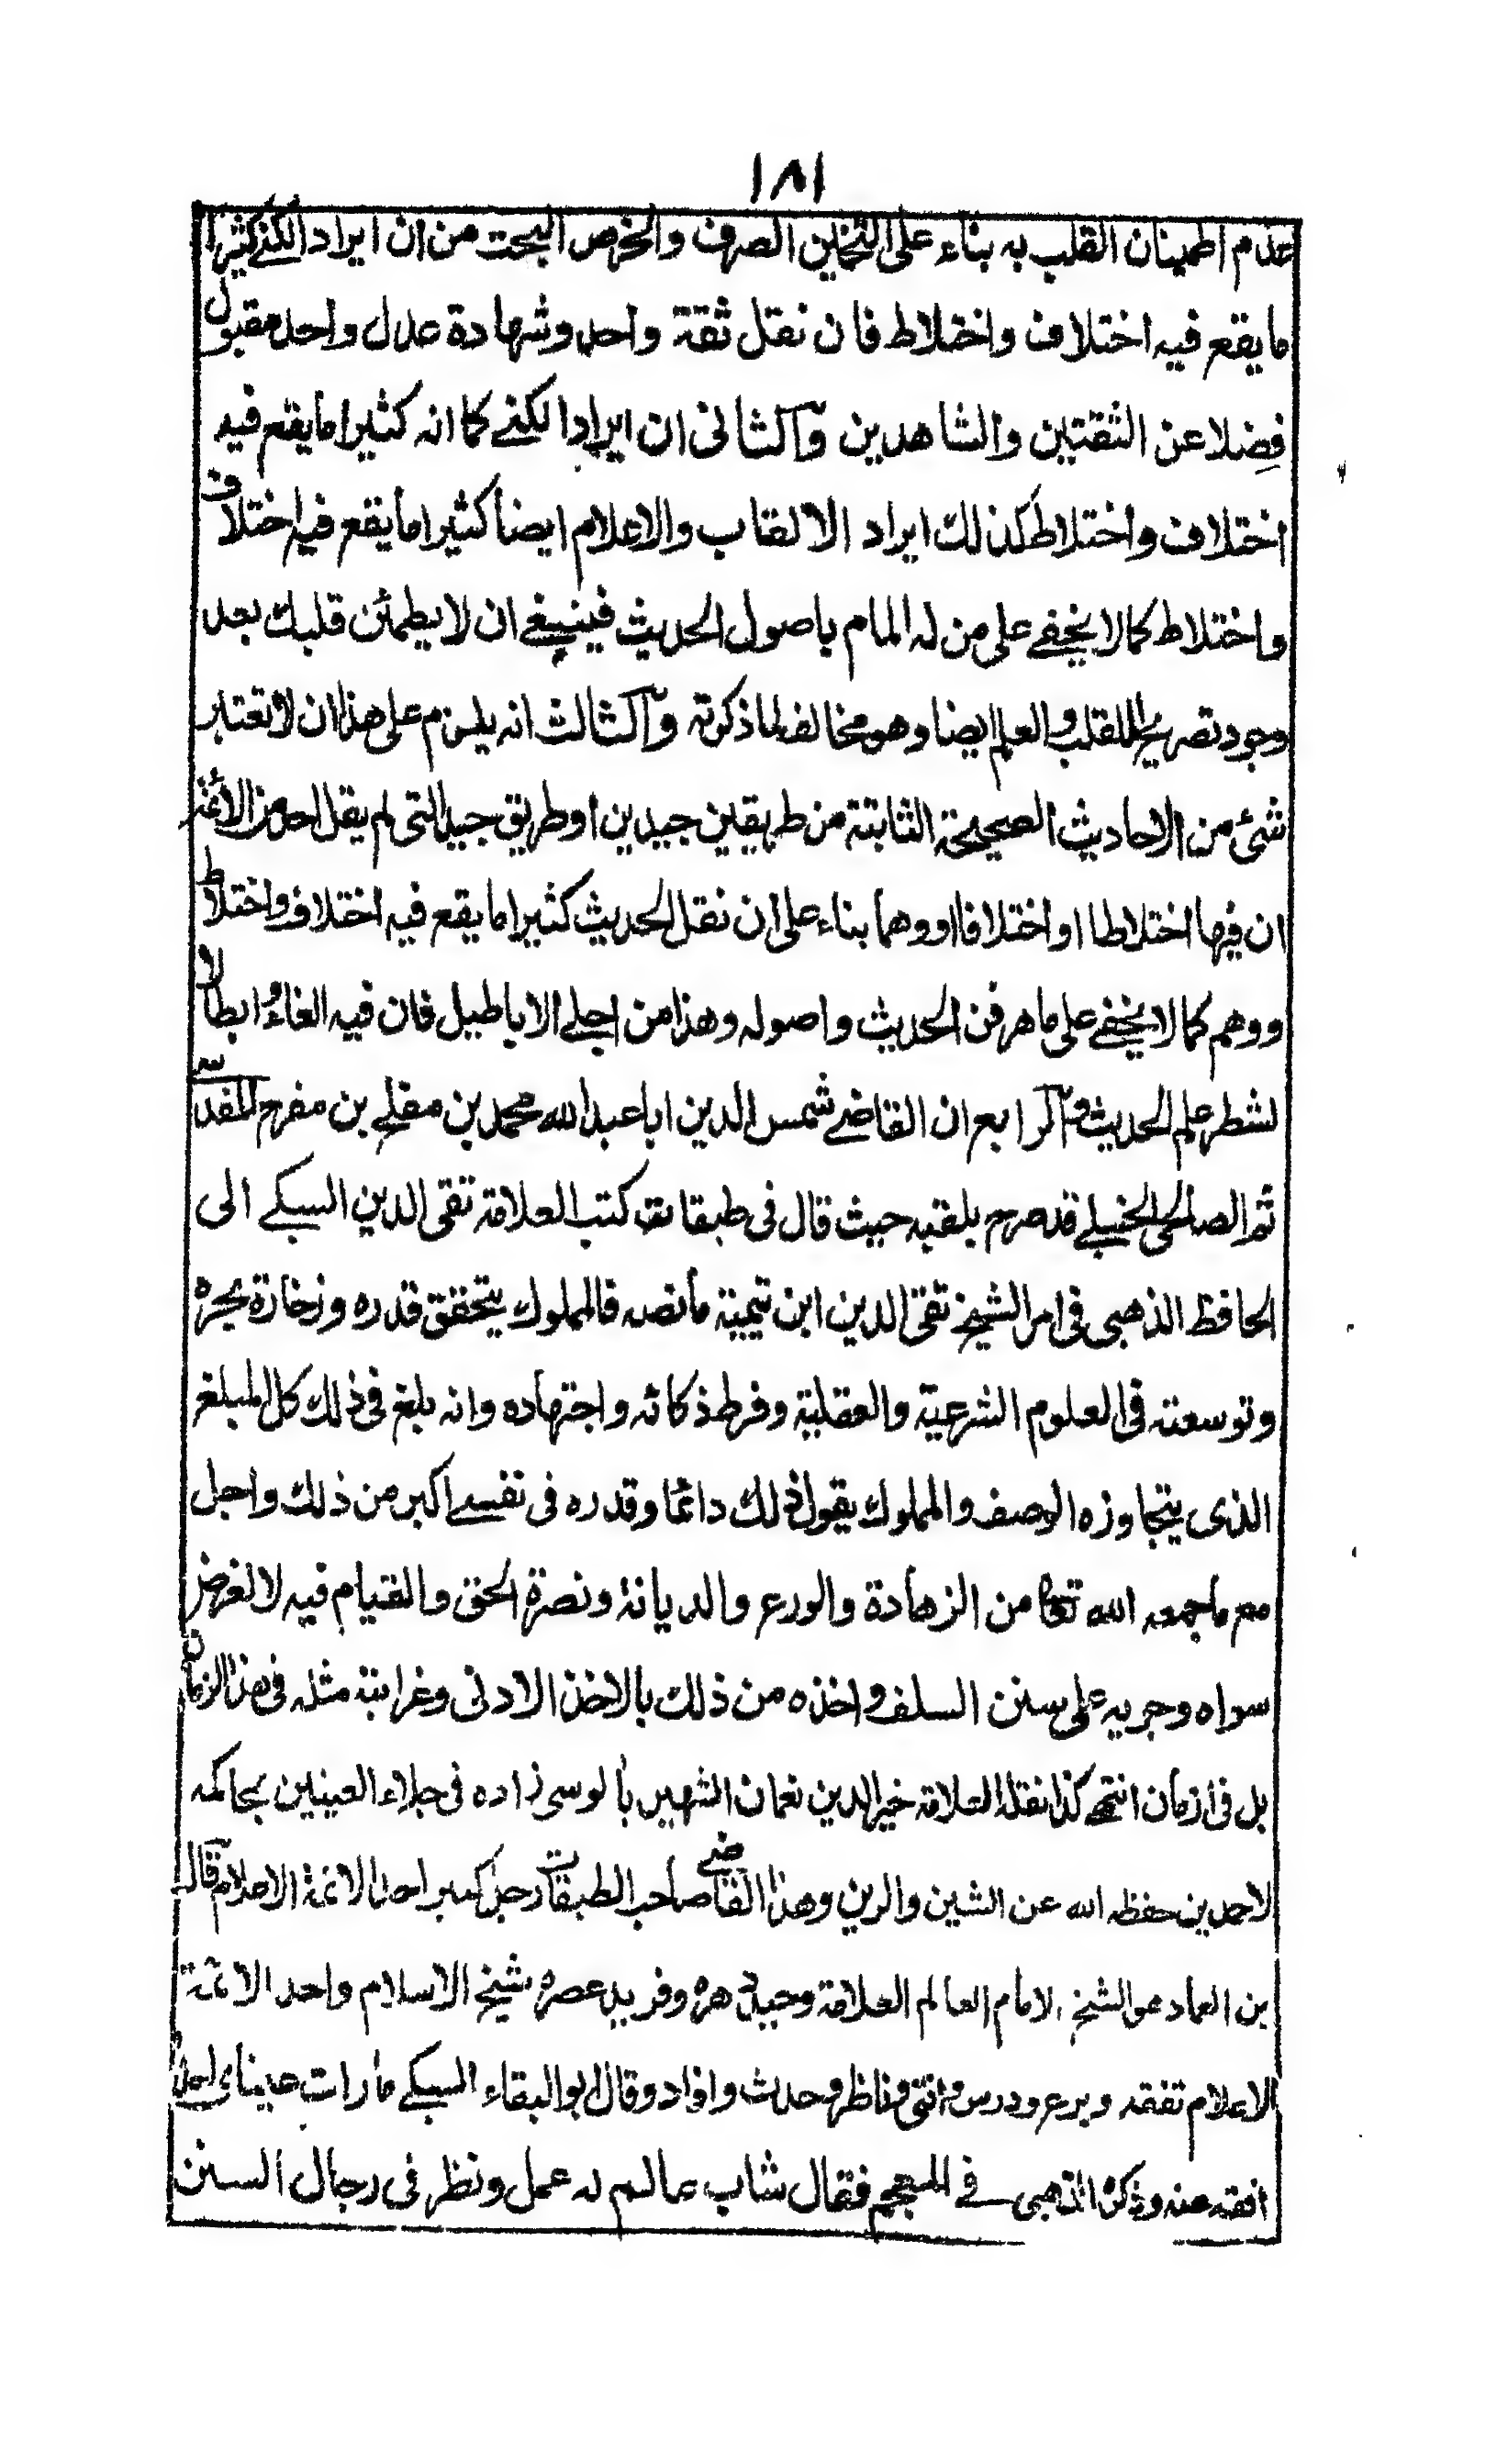 ١٨١
عدم اطمينان القلب به بناء على التخمين الصرف والخرص البحت من ان ايراد الكنى كثيرا
ما يقع فيه اختلاف واختلاط فان نقل ثقة واحد وشهادة عدل واحد مقبول
فضلا عن الثقتين والشاهدين والثانى ان ايراد الكنے كما انه كثيرا ما يقع فيه
اختلاف واختلاط كذلك ايراد الالقاب والاعلام ايضا كثيرا ما يقع فيه اختلاف
واختلاط كما لا يخفے على من له المام باصول الحديث فينبغے ان لا يطمئن قلبك بعد
وجود تصريح اللقب والعلم ايضا وهو مخالف لما ذكرته والثالث انه يلزم على هذا ان لا تعتبر
شئ من الاحاديث الصحيحة الثابتة من طريقين جيدين او طريق جيد التى لم يقل احد من الائمة
ان فيها اختلاطا او اختلافا او وهما بناء على ان نقل الحديث كثيرا ما يقع فيه اختلاف واختلاط
ووهم كما لا يخفے على ماهر فن الحديث واصوله وهذا من اجلے الاباطيل فان فيه الغاءً وابطالا
لشطر علم الحديث والرابع ان القاضے شمس الدين ابا عبد الله محمد بن مفلح بن مفرح المقدسے
ثم الصالحى الحنبلے قد صرح بلقبه حيث قال فى طبقاته كتب العلامة تقى الدين السبكے الى
الحافظ الذهبى فى امر الشيخ تقى الدين ابن تيمية ما نصه فالمملوك يتحقق قدره وزخارة بحره
وتوسعته فى العلوم الشرعية والعقلية وفرط ذكائه واجتهاده وانه بلغ فى ذلك كل المبلغ
الذى يتجاوزه الوصف والمملوك يقول ذلك دائما وقدره فى نفسے اكبر من ذلك واجل
مع ما جمعه الله تعالى من الزهادة والورع والديانة ونصرة الحق والقيام فيه لا لغرض
سواه وجريه على سنن السلف واخذه من ذلك بالاخذ الادنى وغرابة مثله فى هذا الزمان
بل فى ازمان انتهے كذا نقله العلامة خير الدين نعمان الشهير بالوسى زاده فى جلاء العينين بمحاكمة
الاحمدين حفظه الله عن الشين والرين وهذا القاضے صاحب الطبقات رجل كبير احد الائمة الاعلام قال
بن العماد هو الشيخ الامام العالم العلامة وحيد دهره وفريد عصره شيخ الاسلام واحد الائمة
الاعلام تفقه وبرع ودرس وافتى وناظر وحدث وافاد وقال ابو البقاء السبكے ما رات عيناى احدا
افقه منه وذكره الذهبى فے المعجم فقال شاب عالم له عمل ونظر فى رجال السنن